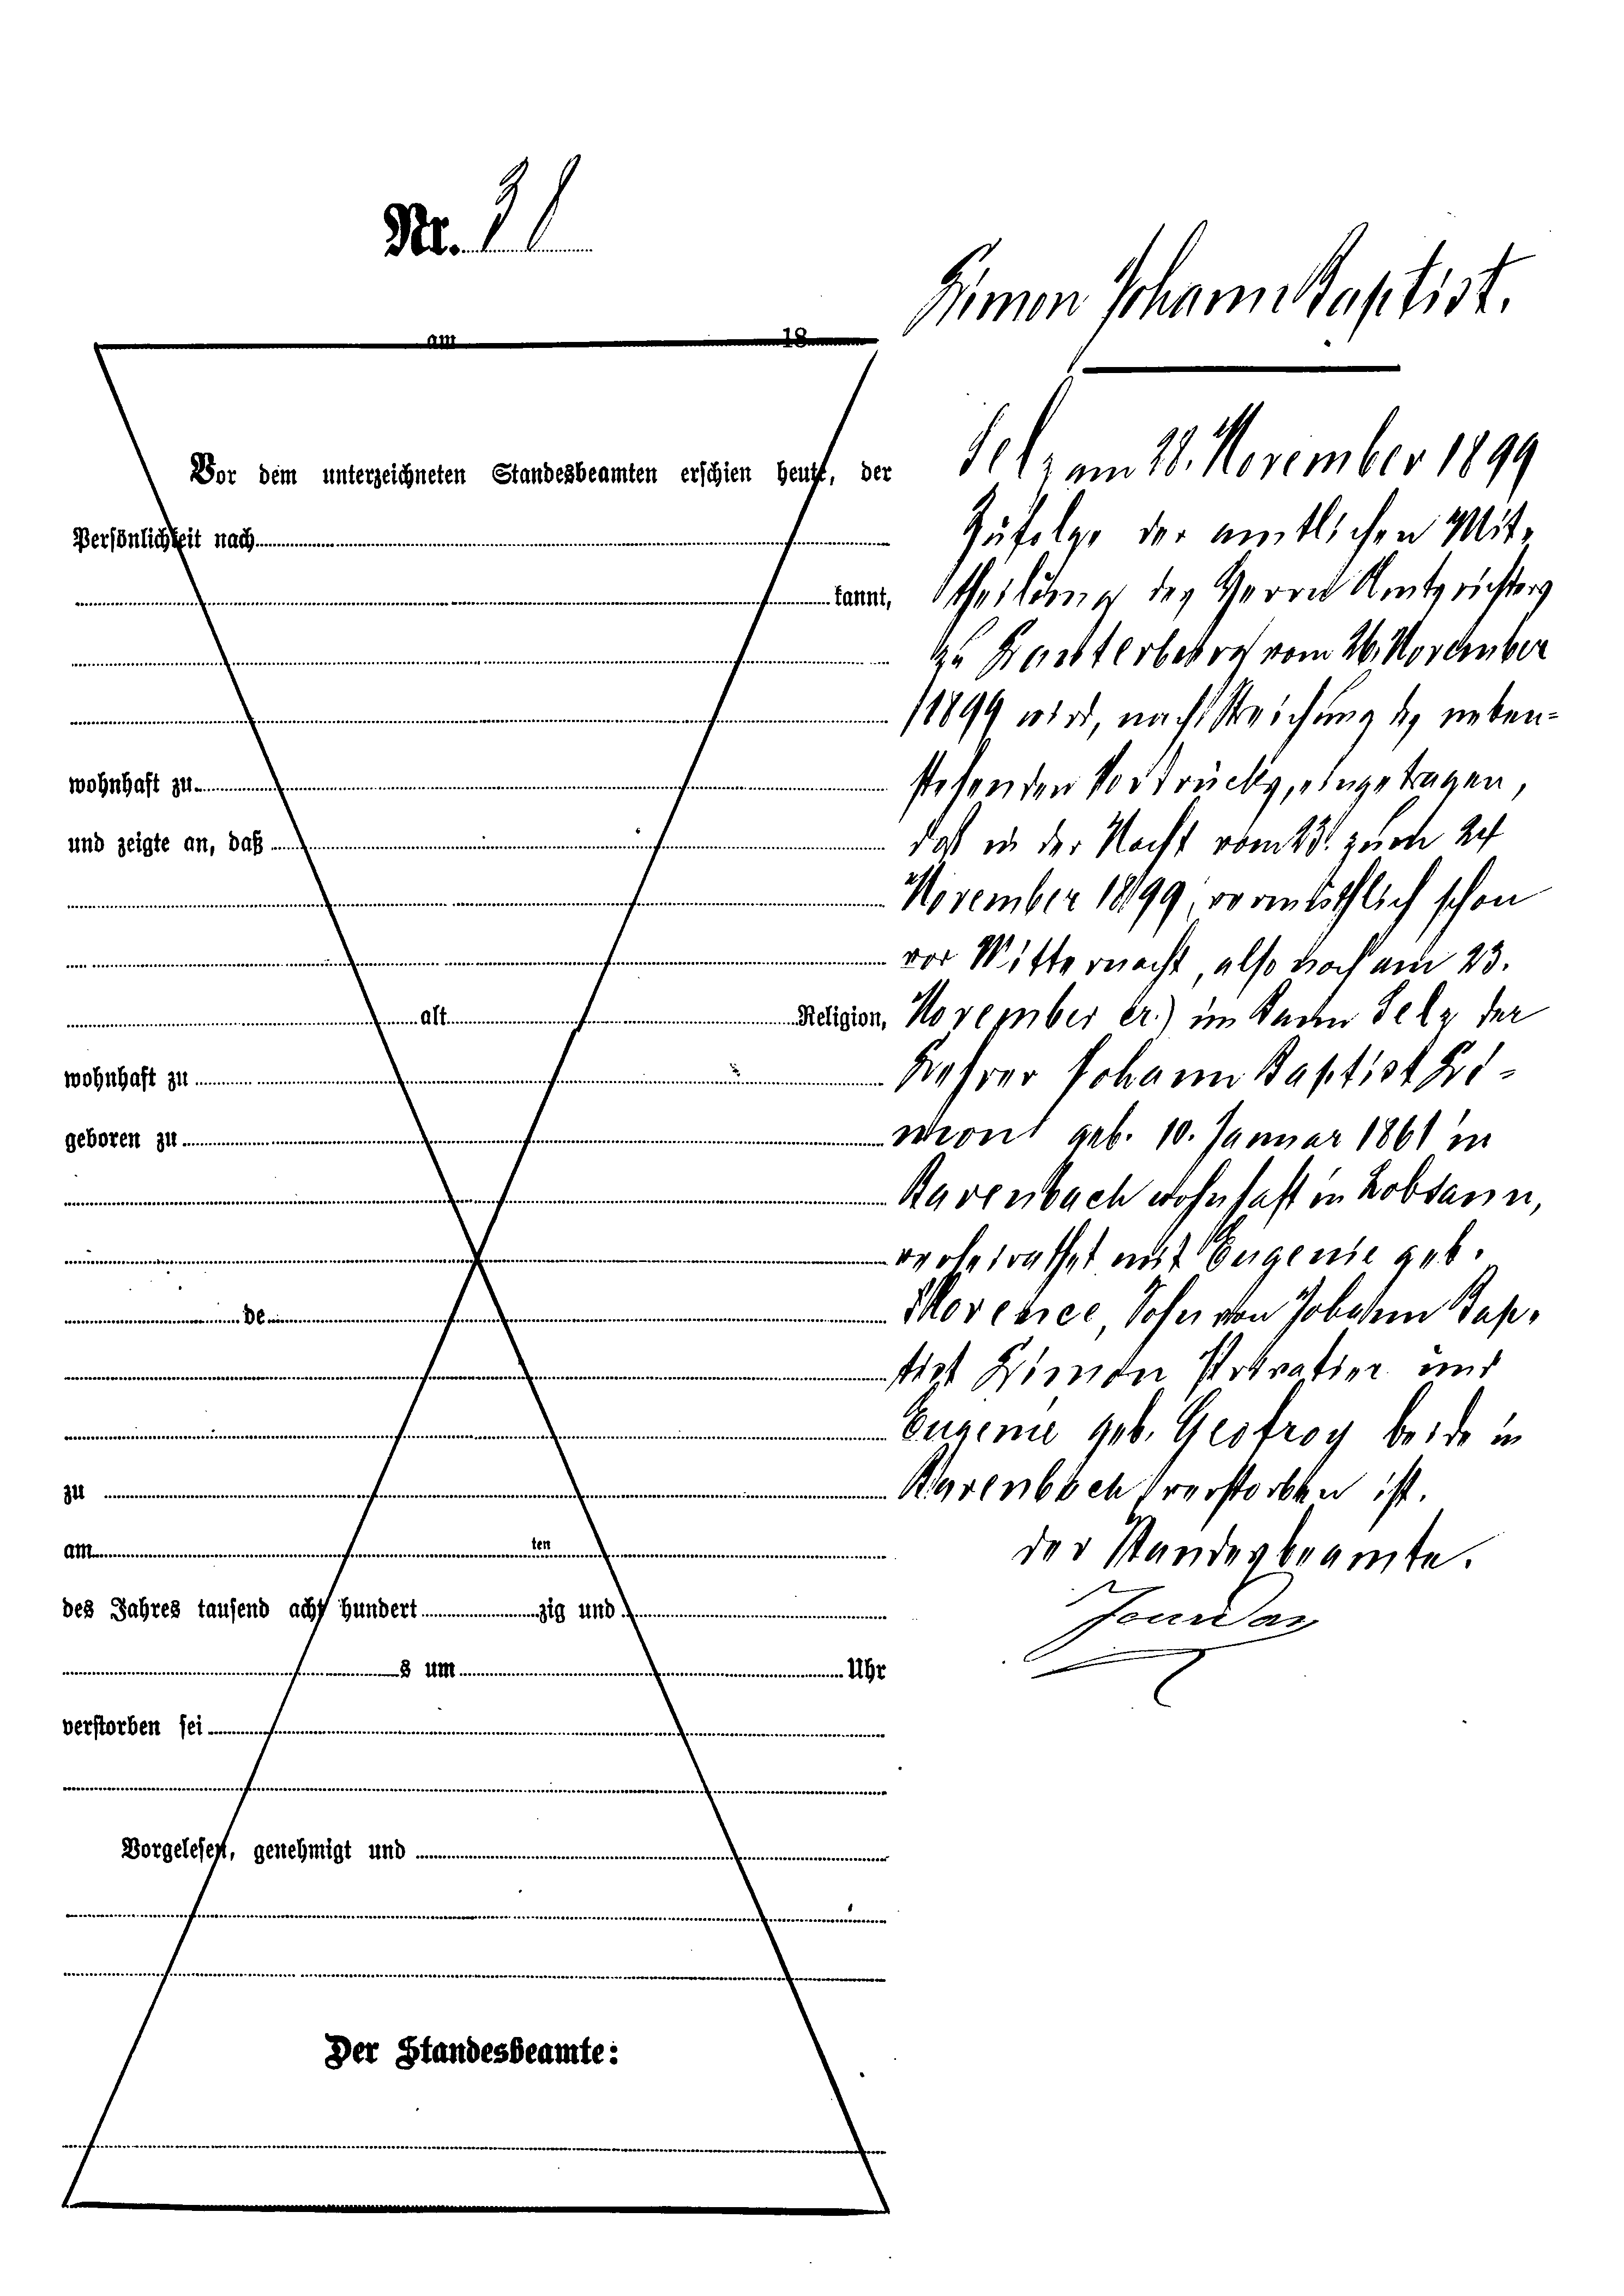 Nr. 31
Simon Johann Baptist.
am 18
Selz am 28. November 1899
Vor dem unterzeichneten Standesbeamten erschien heute, der
Persönlichkeit nach
kannt,
wohnhaft zu
und zeigte an, daß
alt Religion,
wohnhaft zu
geboren zu
de
zu
am ten
des Jahres tausend acht hundert zig und
s um Uhr
verstorben sei
Vorgelesen, genehmigt und
Der Standesbeamte:
Zufolge der amtlichen Mit-
theilung des Herrn Amtsrichters
zu vom 26. November
1899 wird, nach Streichung des neben-
stehenden Vordrucks, eingetragen,
daß in der Nacht vom 23. zum 24
November 1899, vermuthlich schon
vor Mitternacht, also noch am 23.
November cr.) im Bann Selz der
Lehrer Johann Baptist Si-
mon geb. 10. Januar 1861 in
wohnhaft in Lobsann,
verheirathet mit Eugenie geb.
Sohn von Johann Bap-
tist Simon und
Eugenie geb. Geofroy beide in
verstorben ist.
der Standesbeamte.
Jourdan